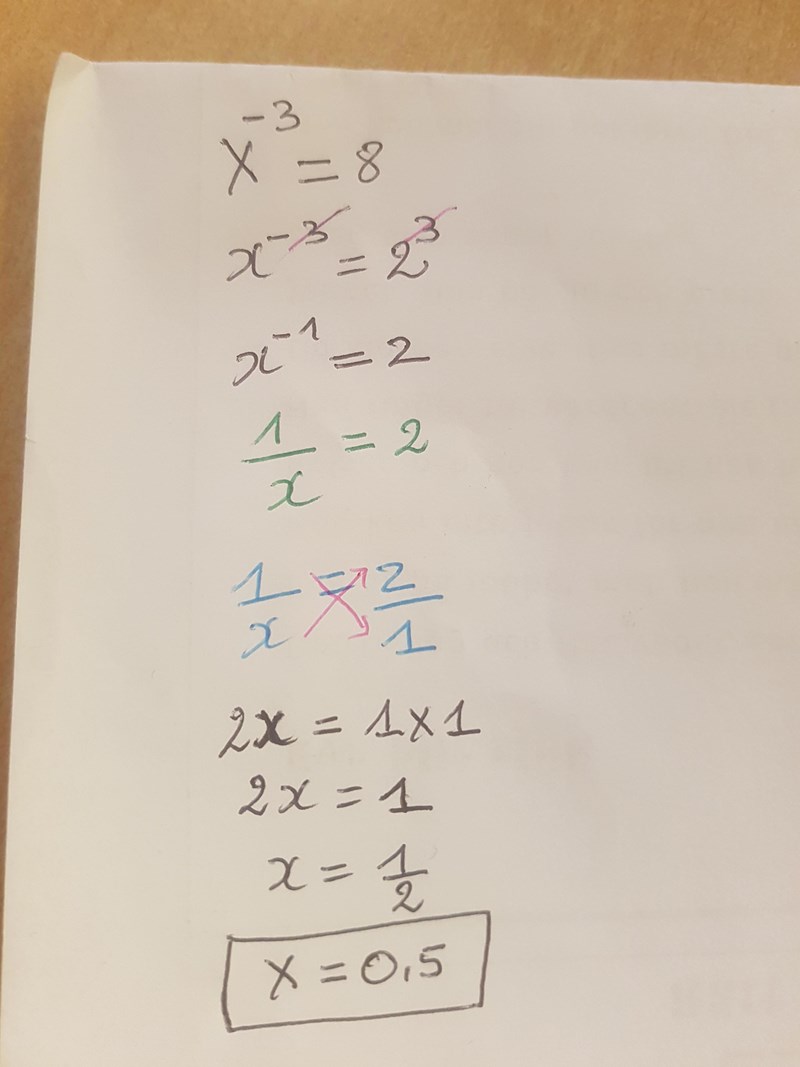 x⁻³ = 8
x⁻³ = 2³
x⁻¹ = 2
1/x = 2
1/x = 2/1
2x = 1x1
2x = 1
x = 1/2
x = 0,5